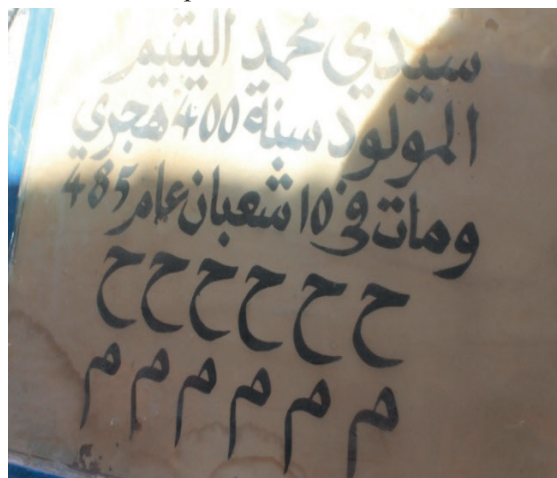 سيدي محمد اليتيم
المولود سنة 400 هجري
ومات في 10 شعبان عام 485
ح ح ح ح ح ح
م م م م م م